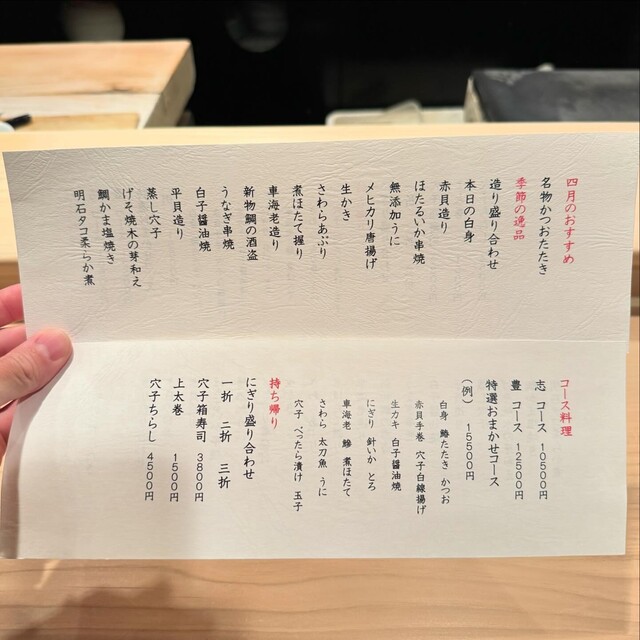 四月のおすすめ
名物かつおたたき
季節の逸品
造り盛り合わせ
本日の白身
赤貝造り
ほたるいか串焼
無添加うに
メヒカリ唐揚げ
生かき
さわらあぶり
煮ほたて握り
車海老造り
新物鯛の酒盗
うなぎ串焼
白子醤油焼
平貝造り
蒸し穴子
げそ焼木の芽和え
鯛かま塩焼き
明石タコ柔らか煮
コース料理
志 コース 10500円
豊 コース 12500円
特選おまかせコース
(例) 15500円
白身 鰆たたき かつお
赤貝手巻 穴子白線揚げ
生カキ 白子醤油焼
にぎり 針いか とろ
車海老 鯵 煮ほたて
さわら 太刀魚 うに
穴子 べったら漬け 玉子
持ち帰り
にぎり盛り合わせ
一折 二折 三折
穴子箱寿司 3800円
上太巻 1500円
穴子ちらし 4500円